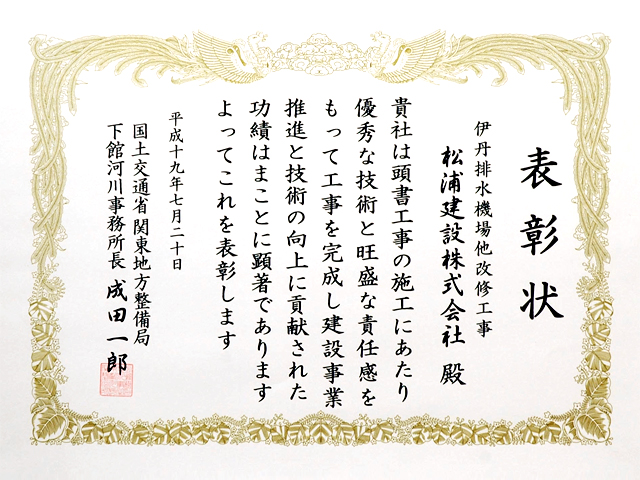 表彰状
伊丹排水機場他改修工事
松浦建設株式会社 殿
貴社は頭書工事の施工にあたり
優秀な技術と旺盛な責任感を
もって工事を完成し建設事業
推進と技術の向上に貢献された
功績はまことに顕著であります
よってこれを表彰します
平成十九年七月二十日
国土交通省関東地方整備局
下館河川事務所長 成田一郎